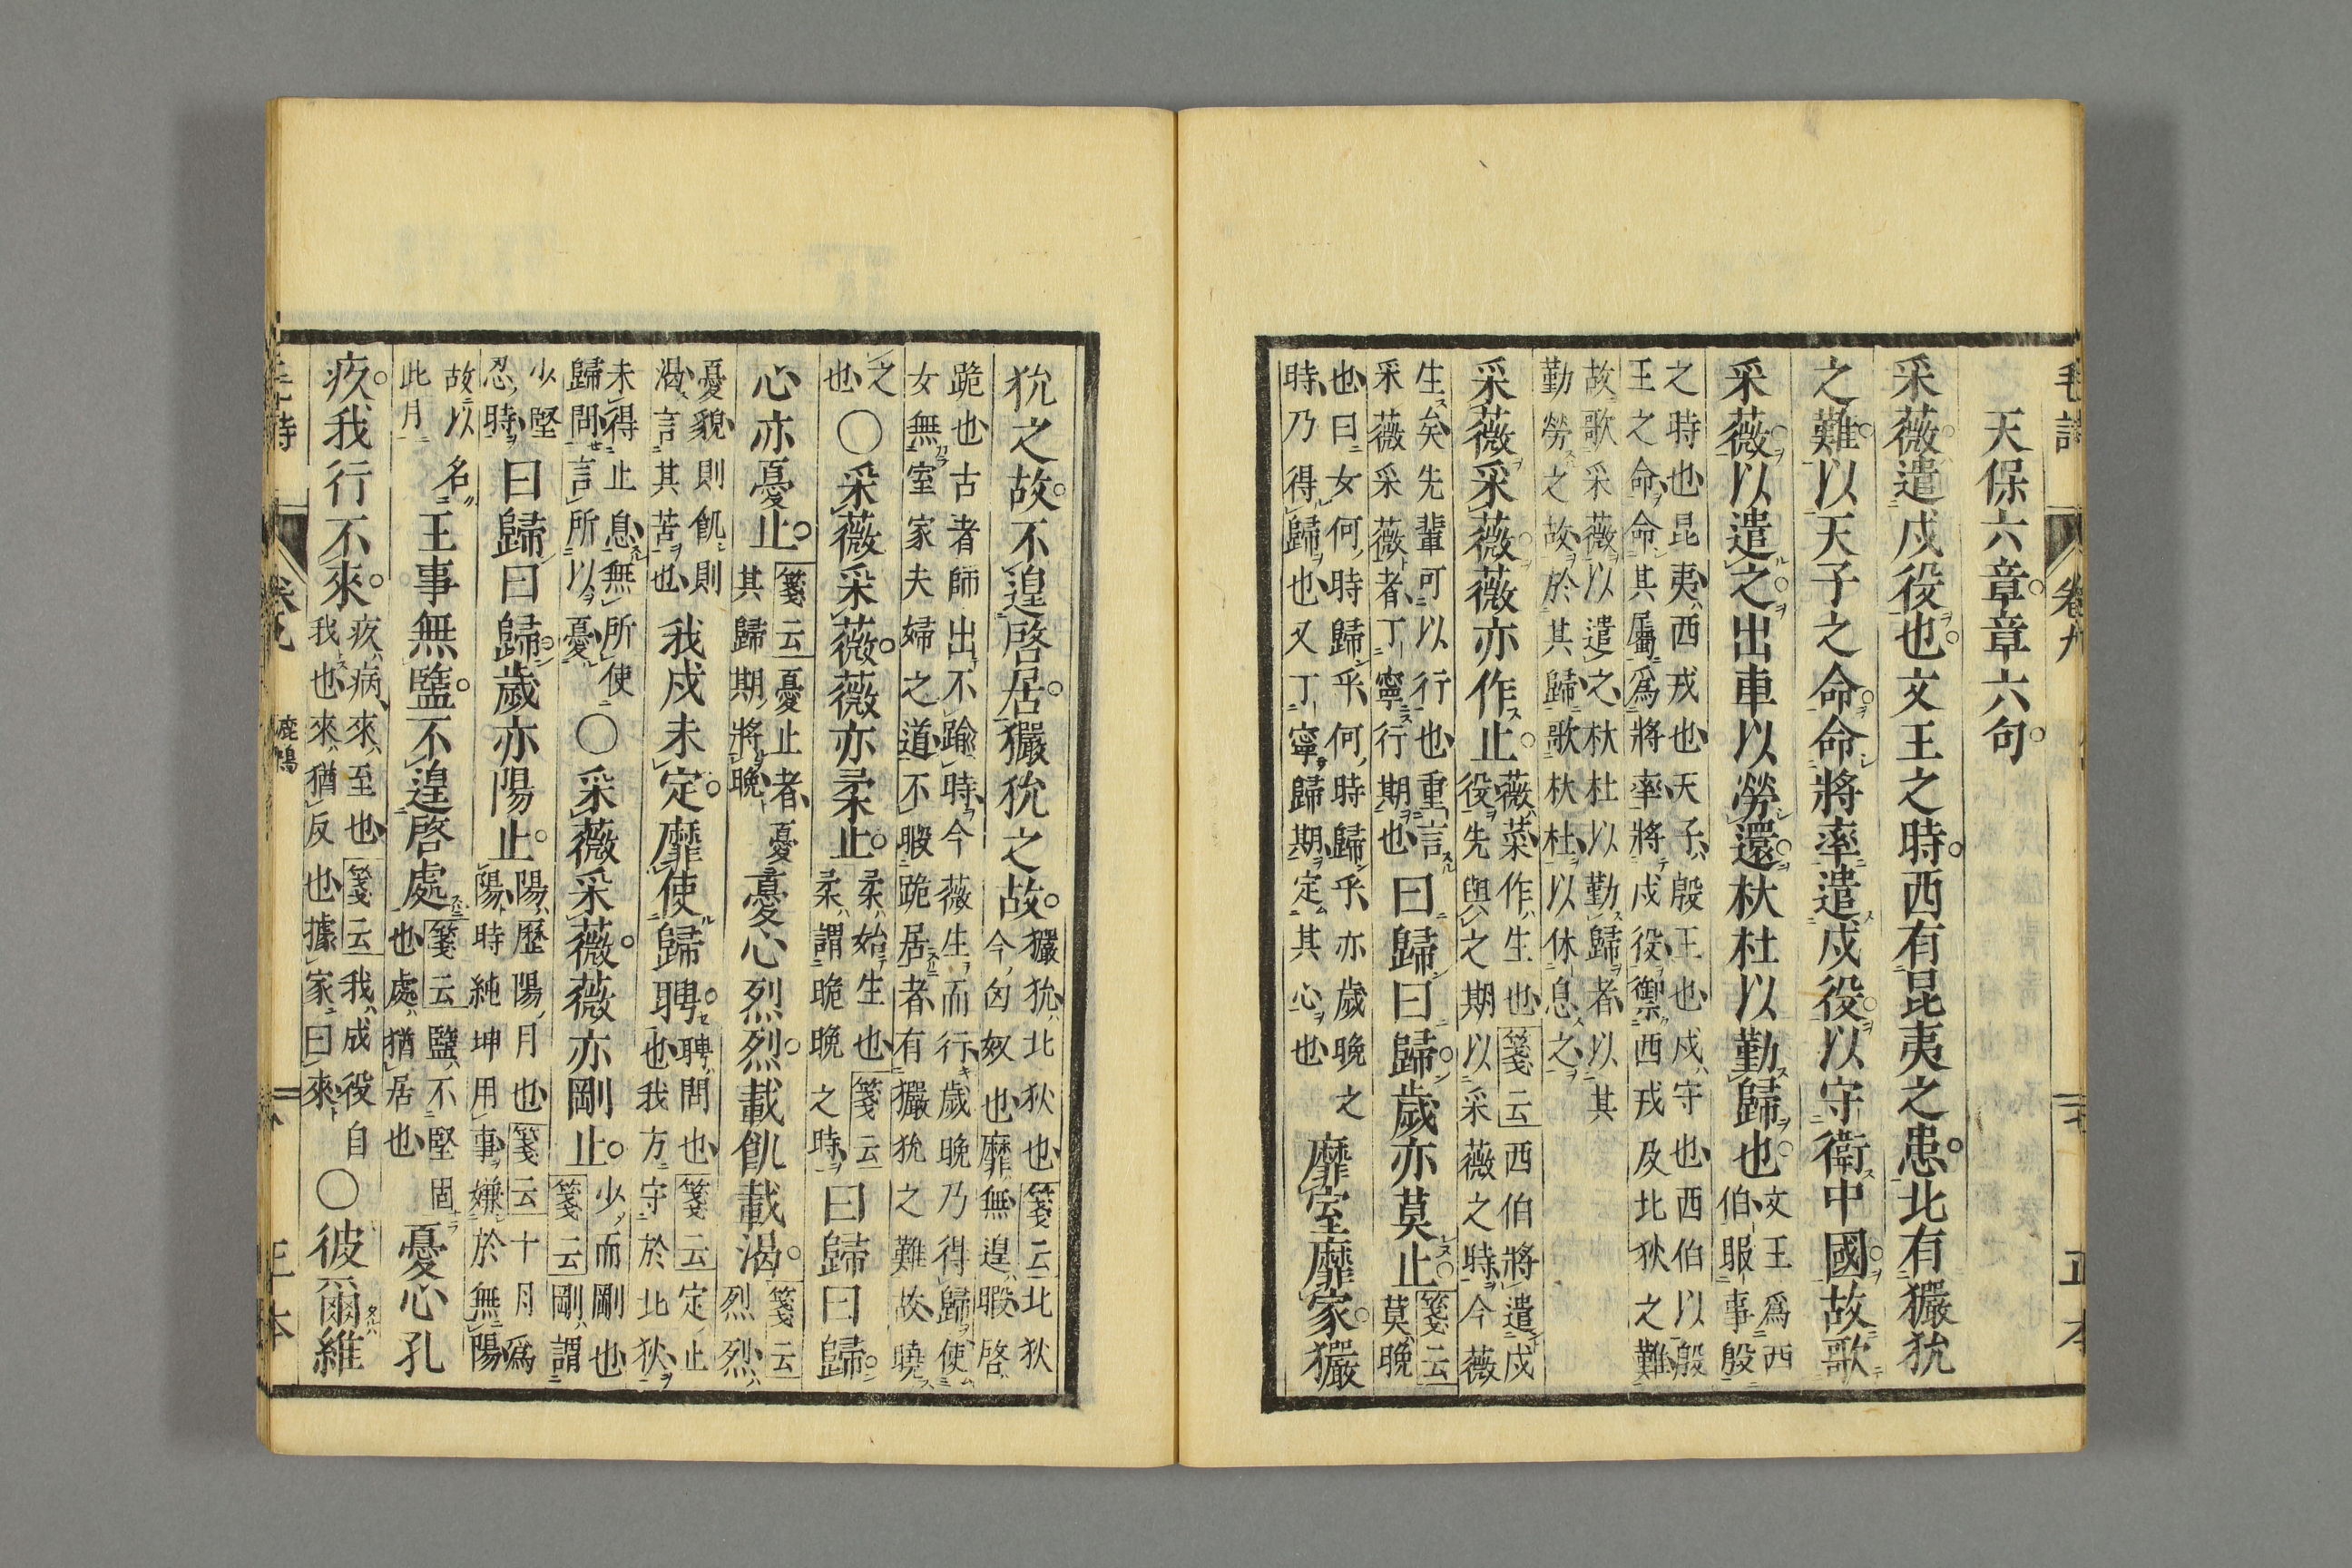 天保六章章六句
采薇遣戍役也文王之時西有昆夷之患北有玁狁
之難以天子之命命將率遣戍役以守衛中國故歌
采薇以遣之出車以勞還杕杜以勤歸也
文王爲西
伯服事殷
之時也昆夷西戎也天子殷王也戍守也西伯以殷
王之命命其屬爲將率將戍役禦西戎及北狄之難
故歌采薇以遣之杕杜以勤歸者以其
勤勞之故於其歸歌杕杜以休息之
采薇采薇薇亦作止
薇菜作生也箋云西伯將遣戍
役先與之期以采薇之時今薇
生矣先輩可以行也重言
采薇采薇者丁寧行期也
曰歸曰歸歲亦莫止
箋云
莫晚
也曰女何時歸乎何時歸乎亦歲晚之
時乃得歸也又丁寧歸期定其心也
靡室靡家玁
狁之故不遑啓居玁狁之故
玁狁北狄也箋云北狄
今匈奴也靡無遑暇啓
跪也古者師出不踰時今薇生而行歲晚乃得歸使
女無室家夫婦之道不暇跪居者有玁狁之難故曉
之
也
○采薇采薇薇亦柔止
柔始生也箋云
柔謂脆晚之時
曰歸曰歸
心亦憂止
箋云憂止者憂
其歸期將晚
憂心烈烈載飢載渴
箋云
烈烈
憂貌則飢則
渴言其苦也
我戍未定靡使歸聘
聘問也箋云定止
也我方守於北狄
未得止息無所使
歸問言所以憂
○采薇采薇薇亦剛止
少而剛也
箋云剛謂
少堅
忍時
曰歸曰歸歲亦陽止
陽歷陽月也箋云十月爲
陽時純坤用事嫌於無陽
故以名
此月
王事無盬不遑啓處
箋云盬不堅固
也處猶居也
憂心孔
疚我行不來
疚病來至也箋云我戍役自
我也來猶反也據家曰來
○彼爾維
卷九
鹿鳴